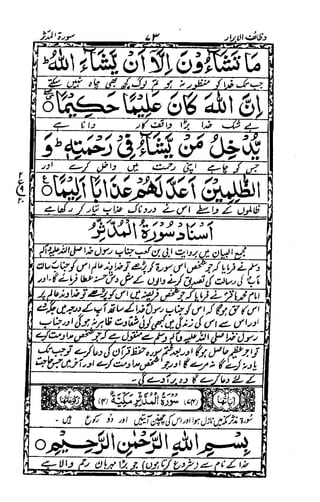 وظائف الابرار ۷۳ سورة المدثر
مَا تَشَاءُونَ إِلَّا أَنْ يَشَاءَ اللّٰهُ
جب تک خدا کو منظور نہ ہو تم لوگ کچھ بھی چاہ نہیں سکتے
إِنَّ اللّٰهَ كَانَ عَلِيمًا حَكِيمًا
بے شک خدا بڑا واقف کار دانا ہے
يُدْخِلُ مَنْ يَشَاءُ فِي رَحْمَتِهِ وَ
جس کو چاہے اپنی رحمت میں داخل کرے اور
الظّٰلِمِينَ أَعَدَّ لَهُمْ عَذَابًا أَلِيمًا
ظالموں کے واسطے اس نے دردناک عذاب تیار کر رکھا ہے
اسناد سورة المدثر
مجمع البیان میں بروایت ابی بن کعب جناب رسول خدا صلی اللہ علیہ وآلہ
وسلم نے فرمایا کہ جو شخص اس سورہ کو پڑھے تو خداوند عالم اس کو جناب رسالت
مآب کی رسالت کی تصدیق کرنے والوں کے مثل دس حسنہ عطا فرمائے گا، اور
امام محمد باقر نے فرمایا کہ جو شخص فریضہ میں اس کو پڑھے تو خداوند عالم پر
اس کا حق ہوگا کہ اس کو جناب رسول خدا کے ساتھ آپ کے درجہ میں جگہ دے
اور اس سے اس کی زندگی میں کبھی کوئی شقاوت ظاہر نہ ہوگی، اور جناب
رسول خدا صلی اللہ علیہ وآلہ وسلم سے منقول ہے کہ جو شخص مداومت کرے
تو اجر عظیم حاصل ہوگا اور بعد ختم سورہ حفظ قرآن کی دعا کرے تو جب تک
یاد نہ کرے گا نہ مرے گا اور جو شخص مداومت کرے اور آخر میں
کے لئے دعا کرے گا وہ برآوے گی۔
(۷۴) سُورَةُ الْمُدَّثِّرِ مَكِّيَّةٌ (۴)
سورۂ مدثر مکہ میں نازل ہوا اور اس کی چھپن آیتیں اور دو رکوع ہیں
بِسْمِ اللّٰهِ الرَّحْمٰنِ الرَّحِيمِ
خدا کے نام سے (شروع کرتا ہوں) جو بڑا مہربان رحم والا ہے